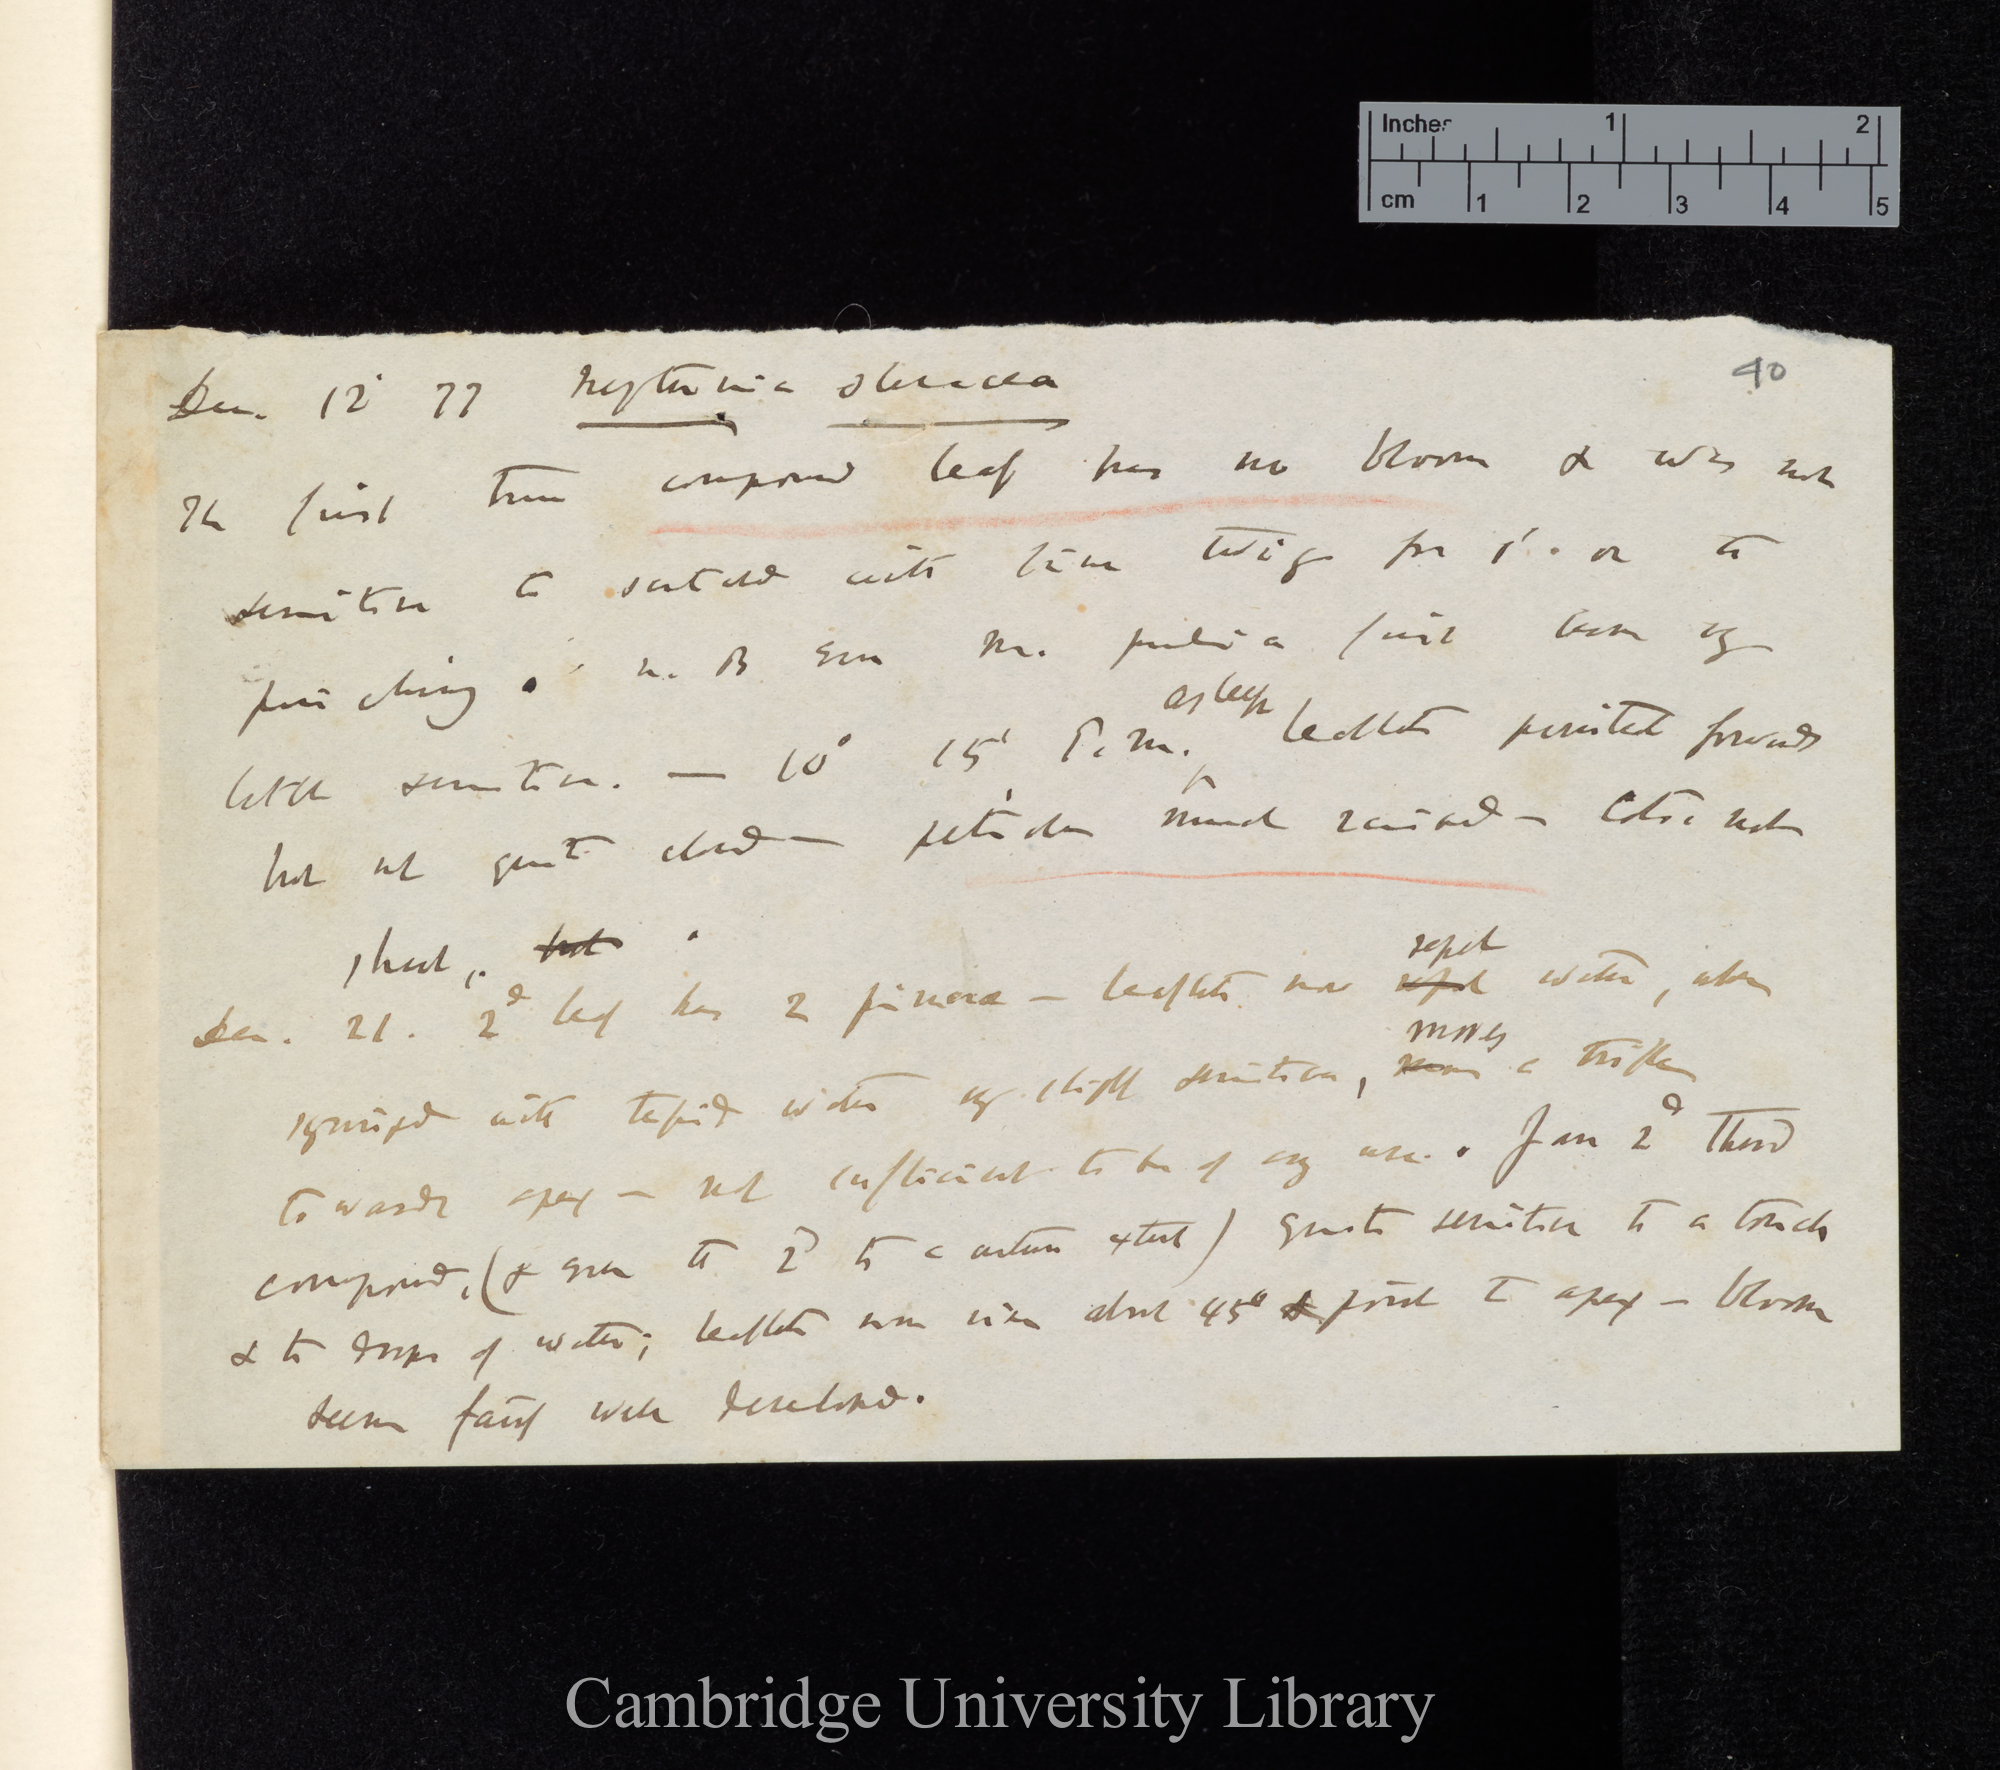 Inches 1 2
cm 1 2 3 4 5
40
Dec. 12' 77 Neptunia oleracea
The first true compound leaf has no bloom & was not
sensitive to with fine twig for 1'. or to
pinching. N. B even M. pudica first leaves
little sensitive. — 10° 15' P.M. asleep leaflets pointed forwards
but not quite closed — petioles much raised — Cots: not
shut,. but
Dec. 21. 2d leaf has 2 pinnæ — leaflets now repel repel water, when
syringed with tepid water slight sensitive, moves a trifle
towards apex — not sufficient to be of any use. Jan 2d Third
compound, (& even to 2d to a certain extent) quite sensitive to a touch
& to drops of water; leaflets now rise about 45° & point to apex — bloom
seems fairly well developed.
Cambridge University Library